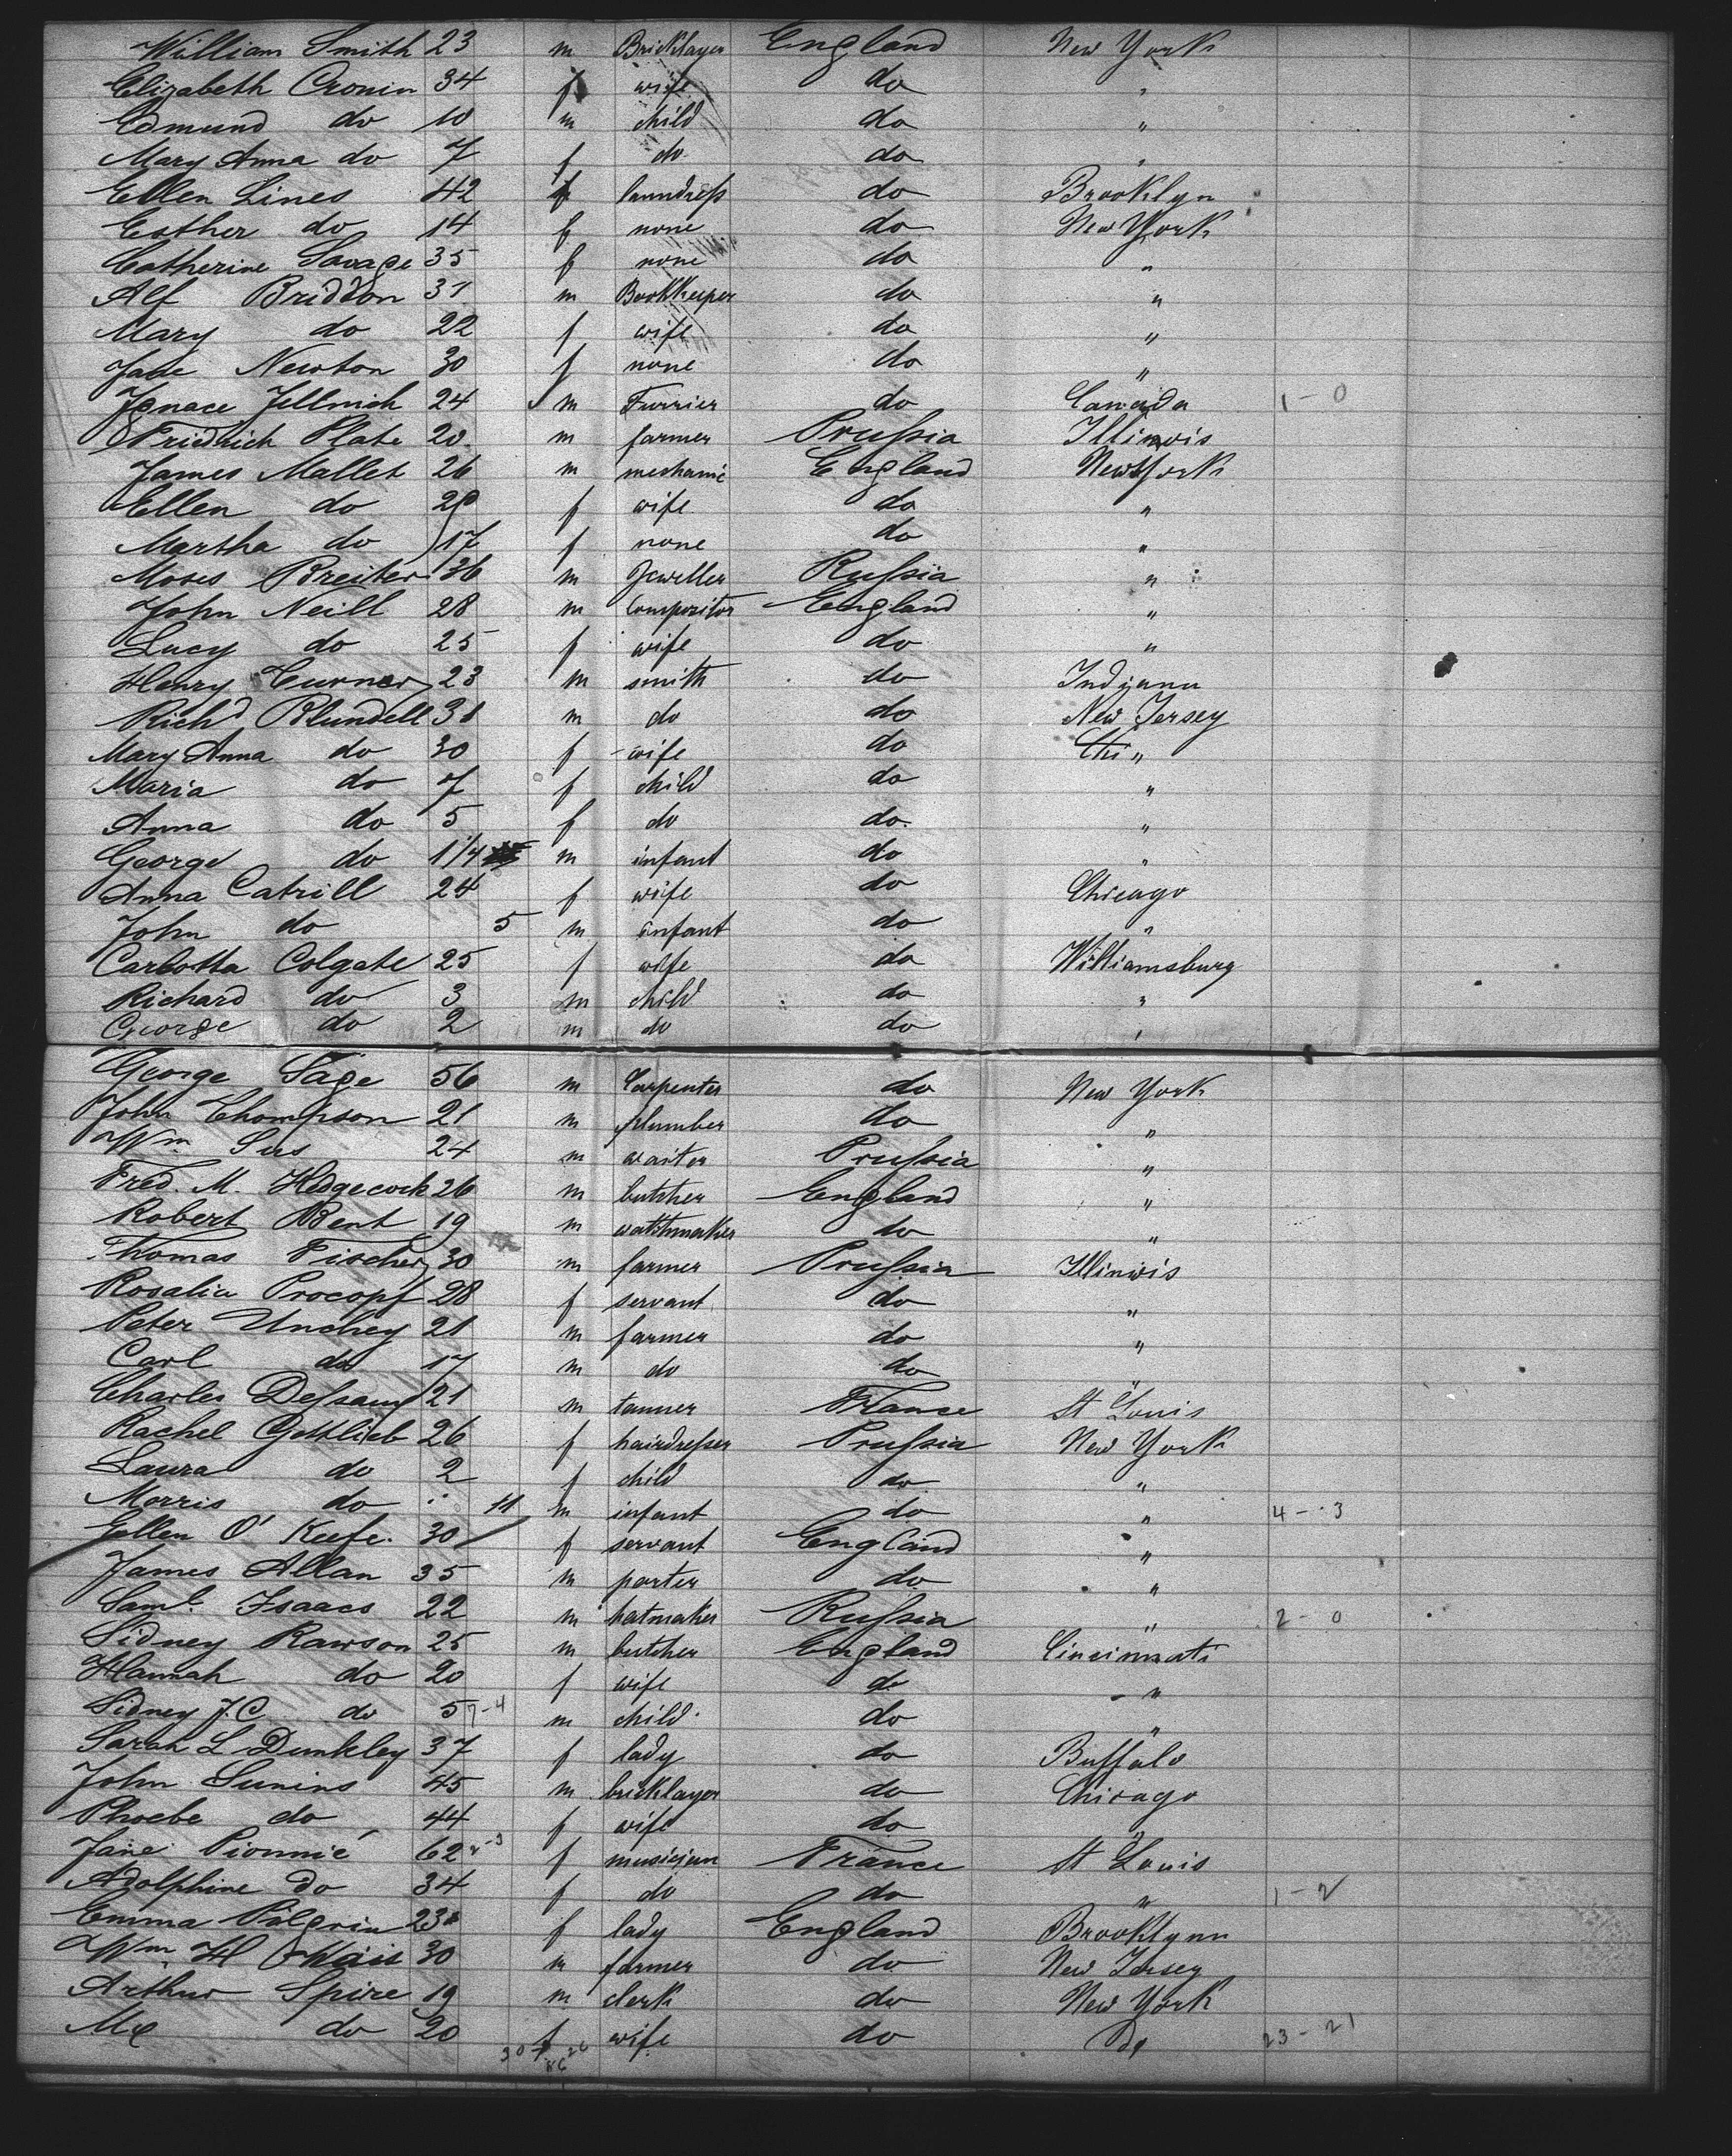 William Smith 23 m Bricklayer England New York
Elizabeth Cronin 34 f wife do "
Edmund do 10 m child do "
Mary Anna do 7 f do do "
Ellen Lines 42 f laundress do Brooklyn
Esther do 14 f none do New York
Catherine Savage 35 f none do "
Alf Briddon 31 m Bookkeeper do "
Mary do 22 f wife do "
Jane Newton 30 f none do "
Ignace Jellnich 24 m Furrier do Canada 1-0
Friedrich Plate 20 m farmer Prussia Illinois
James Mallet 26 m mechanic England New York
Ellen do 29 f wife do "
Martha do 17 f none do "
Moses Breiter 36 m Jeweller Russia "
John Neill 28 m Compositor England "
Lucy do 25 f wife do "
Henry Turner 23 m smith do Indyana
Richd Blundell 31 m do do New Jersey
Mary Anna do 30 f wife do "
Maria do 7 f child do "
Anna do 5 f do do "
George do 1 1/4 m infant do "
Anna Catrill 24 f wife do Chicago
John do 5 m infant do "
Carlotta Colgate 25 f wife do Williamsburg
Richard do 3 m child do "
George do 2 m do do "
George Sage 56 m Carpenter do New York
John Thompson 21 m plumber do "
Wm. Sus 24 m waiter Prussia "
Fred. M. Hedgecock 26 m butcher England "
Robert Bent 19 m watchmaker do "
Thomas Fischer 30 m farmer Prussia Illinois
Rosalia Procopf 28 f servant do "
Peter Unchey 21 m farmer do "
Carl do 17 m do do "
Charles Dessauy 21 m tanner France St Louis
Rachel Gottlieb 26 f hairdresser Prussia New York
Laura do 2 f child do "
Morris do 11 m infant do " 4-3
Ellen O'Keefe. 30 f servant England "
James Allan 35 m porter do "
Saml. Isaacs 22 m hatmaker Russia " 2-0
Sidney Rawson 25 m butcher England Cincinnati
Hannah do 20 f wife do "
Sidney J.C. do 5 7-4 m child do "
Sarah L Dunkley 37 f lady do Buffalo
John Sunins 45 m bricklayer do Chicago
Phoebe do 44 f wife do "
Jane Pionnié 62 f musician France St Louis
Adolphine do 34 f do do " 1-2
Emma Pilgrin 23 f lady England Brooklynn
Wm. H 30 m farmer do New Jersey
Arthur Spire 19 m clerk do New York
do 20 f wife do Do 23-21
30